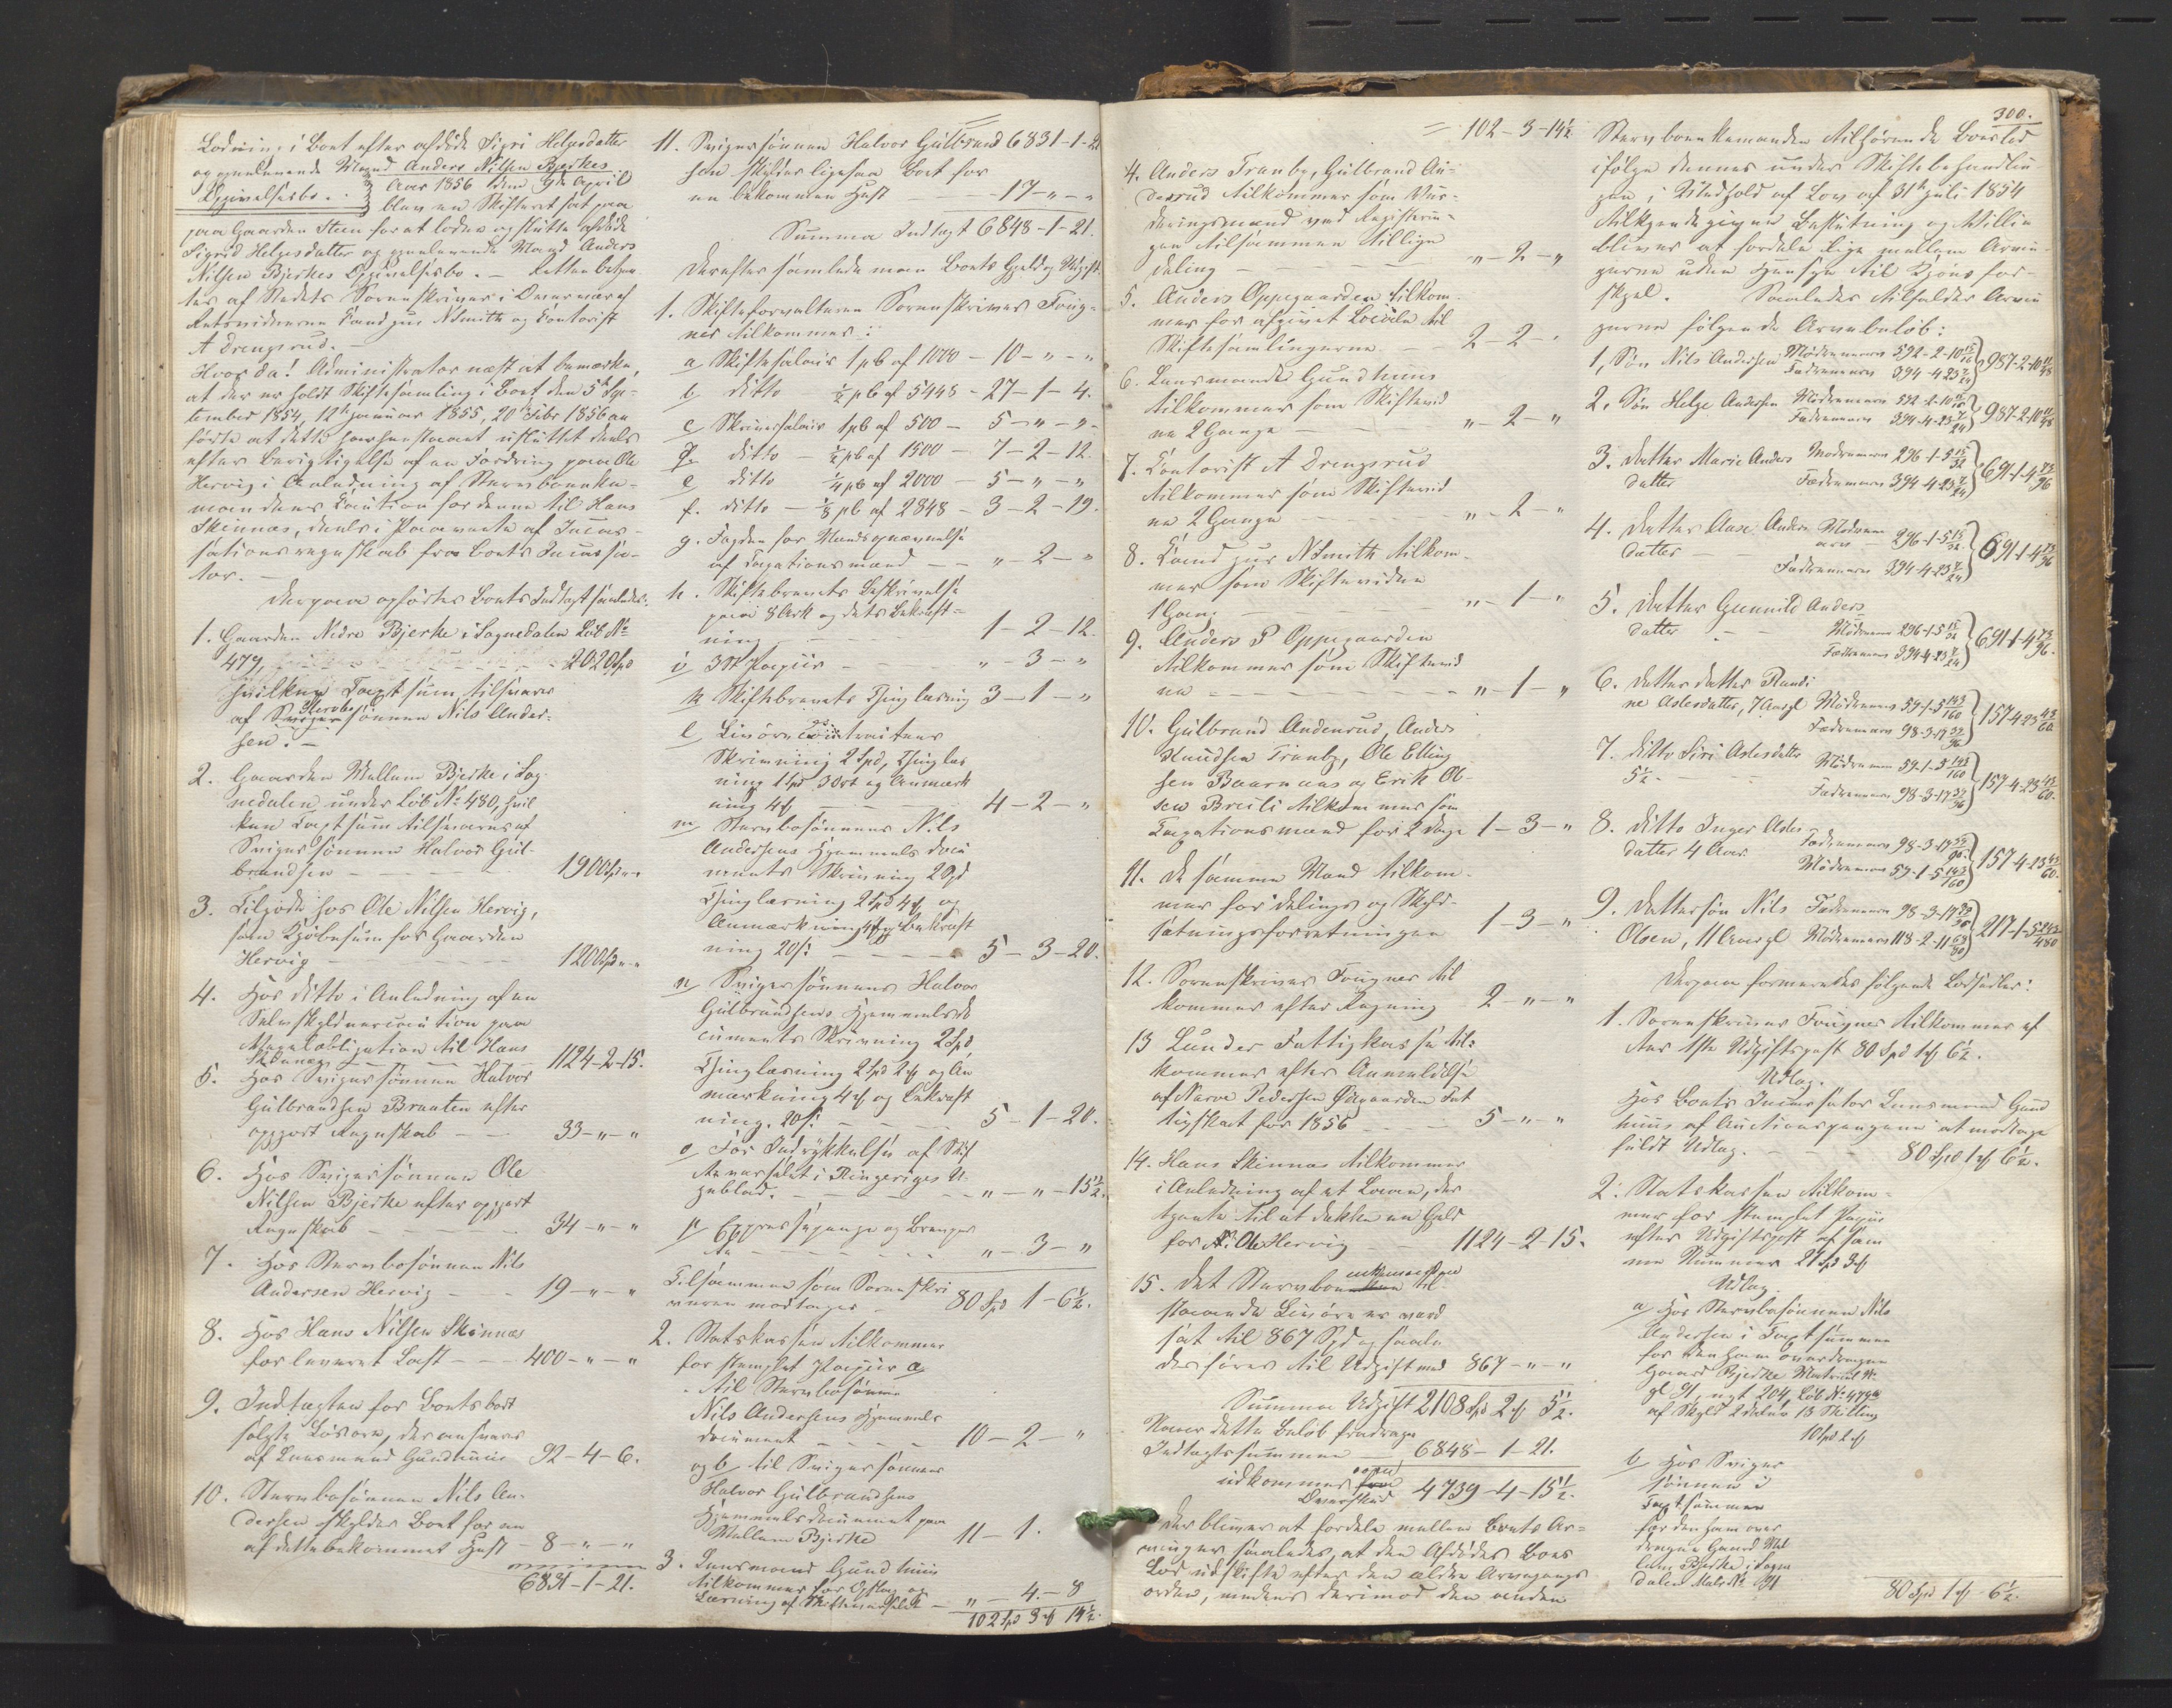 Lodning i Boet efter afdöde Sigri Helgesdatter
og gjenlevende Mand Anders Nilsen Bjerkes
Opgivelsesbo.
Aar 1856 den 9de April
blev en Skifteret sat paa
paa Gaarden Steen for at lodne og slutte afdöde
Sigrid Helgesdatter og gjenlevende Mand Anders
Nilsen Bjerkes Opgivelsesbo. — Retten betjen-
tes af Stedets Sorenskriver i Overvær af
Retsvidnerne Cand jur N Smith og Contorist
A Drengsrud. —
Hvor da! Administrator næst at bemærke,
at der er holdt Skiftesamling i Boet den 5te Sep-
tember 1854, 12te Januar 1855, 20 Febr 1856 an
förte at dette
efter Berigtigelse af en Fordring paa Ole
Hervig i Anledning af Stervboenke-
mandens Caution for denne til Hans
Skinnas, deels i Paavente af Incas-
sationsregnskab fra Boets Incassa-
tor. —
Derpaa opförtes Boets Indtægt saaledes:
1. Gaarden Nedre Bjerke i Sognedalen Löb No
479, 2020 Spd
hvilken Taxtsum tilsvares
af Stervbosönnen Nils Ander-
sen. —
2. Gaarden Mellem Bjerke i Sog-
nedalen under Löb No 480, hvil
ken Taxtsum tilsvares af
Svigersönnen Halvor Gul-
brandsen — 1900 Spd " "
3. Tilgode hos Ole Nilsen Hervig,
som Kjöbesum for Gaarden
Hervig — 1200 Spd " "
4. Hos ditto i Anledning af en
Selvskyldnercaution paa
obligation til Hans
Skinnas — 1124-2-15.
5. Hos Svigersönnen Halvor
Gulbrandsen Braaten efter
opgjort Regnskab — 33-"-"
6. Hos Svigersönnen Ole
Nilsen Bjerke efter opgjort
Regnskab — 34-"-"
7. Hos Stervbosönnen Nils
Andersen Hervig — 19-"-"
8. Hos Hans Nilsen Skinnas
for leveret Last — 400-"-"
9. Indtægten for Boets bort
solgte Lösöre, der ansvares
af Lensmand Gundhuus 92-4-6.
10. Stervbosönnen Nils An-
dersen skylder Boet for en
af dette bekommet Hest — 8-"-"
6831-1-21.
11. Svigersönnen Halvor Gulbrand 6831-1-21
sen skylder ligesaa Boet for
en bekommen Hest — 17-"-"
Summa Indtægt 6848-1-21.
Derefter samlede man Boets Gjeld og Udgift
1. Skifteforvalteren Sorenskriver Foug-
ner tilkommer:
a Skiftesalair 1 pCt af 1000 — 10-"-"
b ditto ½ pCt af 5448 — 27-1-4.
c Skriversalair 1 pCt af 500 — 5-"-"
d. ditto — ½ pCt af 1500 — 7-2-12.
e ditto ¼ pCt af 2000 — 5-"-"
f. ditto — ⅛ pCt af 2848 — 3-2-19.
g. Fogden for Mandsopnævnelse
af Taxationsmænd — "-2-"
h. Skiftebrevets Beskrivelse
paa 8 Ark og dets Bekræft-
ning — 1-2-12.
i 3 St Papiir — "-3-"
k Skiftebrevets Thinglæsning 3-1-"
l Livörecontractens
Skrivning 2 Spd, Thinglæs
ning 1 Spd 3 Ort og Anmærk
ning 4 — 4-2-"
m Stervbosönnens Nils
Andersens Hjemmels docu
ments Skrivning 2 Spd
Thinglæsning 2 Spd 4 og
Anmærkning 4 og Bekræft
ning 20 s: — 5-3-20.
n Svigersönnens Halvor
Gulbrandsens Hjemmelsdo
cuments Skrivning 2 Spd,
Thinglæsning 2 Spd 2 og An
mærkning 4 og Bekræft
ning. 20 s: — 5-1-20.
o For Indrykkelse af Skif
tevarselet i Ringeriges U-
geblad. — "-"-15½.
p Expressepenge og Brevpor
to — "-3-"
Tilsammen som Sorenskri
veren modtager — 80 Spd 1-6½.
2. Statskassen tilkommer
for stemplet Papiir a
til Stervbosönnen
Nils Andersens Hjemmels
document — 10-2-"
og b til Svigersönnens
Halvor Gulbrandsens
Hjemmelsdocument paa
Mellem Bjerke 11-1.
3. Lensmand Gundhuus
tilkommer for Opslag og
Læsning af Skiftevarselet — "-4-8
102 Spd 3 14½.
300.
= 102-3-14½
4. Anders Tranby, Gulbrand An-
dersrud tilkommer som Vur-
deringsmænd ved Registerin-
gen tilsammen tillige
deling — "-2-"
5. Anders Oppegaarden tilkom-
mer for afgivet Locale til
Skiftesamlingerne — 2-2-"
6. Lensmand Gundhuus
tilkommer som Skiftevid
ne 2 Gange — "-2-"
7. Contorist A Drengsrud
tilkommer som Skiftevid
ne 2 Gange — "-2-"
8. Cand jur N Smith tilkom-
mer som Skiftevidne
1 Gang — "-1-"
9. Anders P Oppegaarden
tilkommer som Skiftevid
ne — "-1-"
10. Gulbrand Andersrud, Anders
Knudsen Tranby, Ole Elling
sen Baarnaas og Erik Ol-
sen Breili tilkommer som
Taxationsmænd for 2 Dage 1-3-"
11. De samme Mænd tilkom-
mer for delings og Skyld-
sætningsforretningen 1-3-"
12. Sorenskriver Fougner til
kommer efter Regning 2-"-"
13 Lunder Fattigkasse til-
kommer efter Anmeldelse
af Narve Pedersen Ödegaarden Fat
tigskat for 1856 — 5-"-"
14. Hans Skinnas tilkommer
i Anledning af et Laan, der
tjente til at dække en Gjeld
for Ole Hervig — 1124-2-15.
15. Det Stervboenkemanden til-
staaende Livöre er værd
sat til 867 Spd og saale
des föres til Udgift med 867-"-"
Summa Udgift 2108 Spd 2 5½.
Naar dette Belöb fradrages
Indtægtssummen 6848-1-21.
udkommer som
Overskud 4739-4-15½.
Der bliver at fordele mellem Boets Ar-
vinger saaledes, at den Afdödes Boes
Lod udskifte efter den ældre Arvegangs
orden, medens derimod den anden
Stervboenkemanden tilhörende Boeslod
ifölge dennes under Skiftebehandlin
gen i Medhold af Lov af 31te Juli 1854
tilkjendegivne Beslutning og Villie
bliver at fordele lige mellem Arvin-
gerne uden Hensyn til Kjöns for-
skjel. Saaledes tilfalder Arvin
gerne fölgende Arvebelöb:
1, Sön Nils Andersen Mödrenearv 592-2-10 15/16
Fædrenearv 394-4-23 7/24 } 987-2-10 11/48
2. Sön Helge Andersen Mödrenearv 592-2-10 15/16
Fædrenearv 394-4-23 7/24 } 987-2-10 11/48
3. Datter Marie Anders Mödrenearv 296-1-5 15/32
datter Fædrenearv 394-4-23 7/24 } 691-1-4 73/96
4. Datter Aase Anders Mödrene
datter — arv 296-1-5 15/32
Fædrenearv 394-4-23 7/24 } 691-1-4 73/96
5. Datter Gunnild Anders
datter — Mödrenearv 296-1-5 15/32
Fædrenearv 394-4-23 7/24 } 691-1-4 73/96.
6. Datterdatter Randi
ne Aslesdatter, 7 Aar gl Mödrenearv 59-1-5 143/160
Fædrenearv 98-3-17 79/96 } 157-4-23 43/60
7. Ditto Siri Aslesdatter
5½. — Mödrenearv 59-1-5 143/160
Fædrenearv 98-3-17 79/96 } 157-4-23 43/60.
8. Ditto Inger Asles
datter 4 Aar. Fædrenearv 98-3-17 79/96
Mödrenearv 59-1-5 143/160 } 157-4-23 43/60.
9. Dattersön Nils Fædrenearv 98-3-17 79/96
Olsen, 11 Aar gl Mödrenearv 118-2-11 63/80 } 217-1-5 293/480
Derpaa formeredes fölgende Lodsedler:
1. Sorenskriver Fougner tilkommer af
den 1ste Udgiftspost 80 Spd 1 6½.
Udlæg.
Hos Boets Incassator Lensmand Gund
huus af Auctionspengene at modtage
fuldt Udlæg. — 80 Spd 1 6½.
2. Statskassen tilkom-
mer for stemplet Papiir
efter Udgiftspost af sam
me Nummer 21 Spd 3
Udlæg
a Hos Stervbosönnen Nils
Andersen i Taxtsummen
for den ham overdragne
Gaard Bjerke Matricul No
gl 91, nyt 204, Löb No 479a
af Skyld 2 Daler 13 Skilling
10 Spd 2
b Hos Sviger
sönnen i
Taxtsummen
for den ham over
dragne Gaard Mel
lem Bjerke i Sogne
dalen Matr No 91
80 Spd 1 6½.